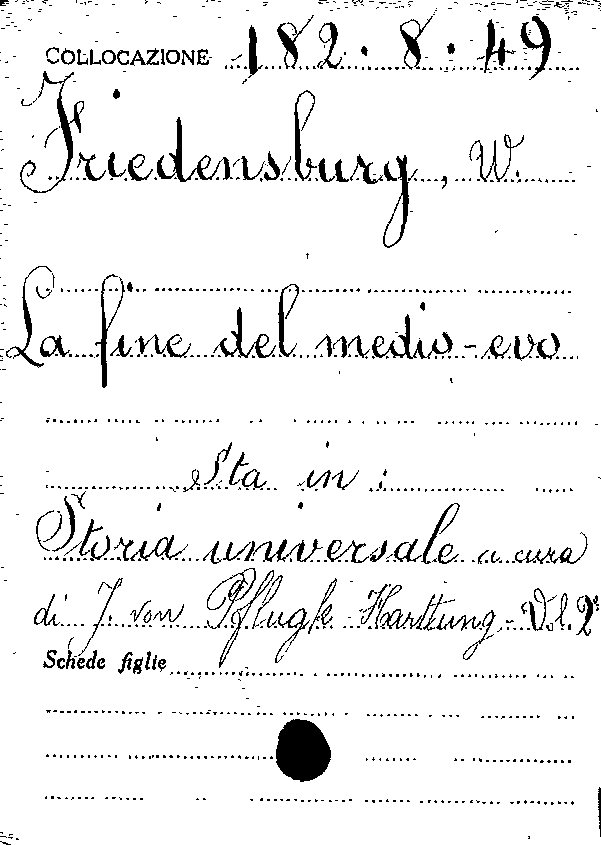 COLLOCAZIONE 182.8.49
Friedensburg, W.
La fine del medio-evo
Sta in:
Storia universale a cura
di J. von Pflugk-Harttung-Vol. 2°
Schede figlie